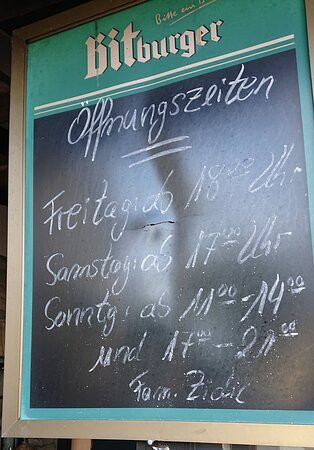 Bitte ein B
Bitburger
Öffnungszeiten
Freitag: ab 18⁰⁰ Uhr
Samstag: ab 17⁰⁰ Uhr
Sonntg: ab 11⁰⁰ - 14⁰⁰
und 17⁰⁰ - 21⁰⁰
Fam. Zidic